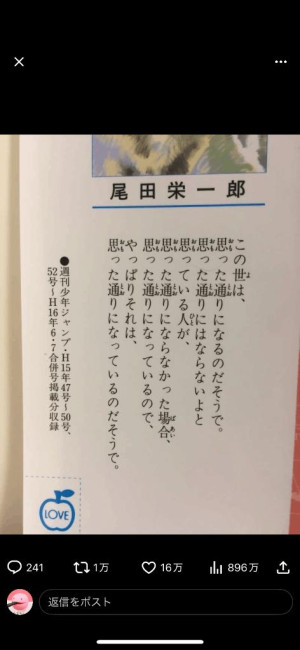 尾田栄一郎
この世は、
思った通りになるのだそうで。
思った通りにはならないよと
思っている人が、
思った通りにならなかった場合、
思った通りになっているので、
やっぱりそれは、
思った通りになっているのだそうで。
●週刊少年ジャンプ・H15年47号〜50号、
52号〜H16年6・7合併号掲載分収録
LOVE
241
1万
16万
896万
返信をポスト